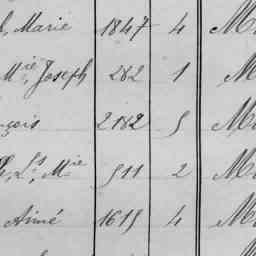 l, Marie 1847 4 M
Mie, Joseph 282 1 M
nçois 2182 5 M
h, Ls, Mie 511 2 M
Aimé 1615 4 M